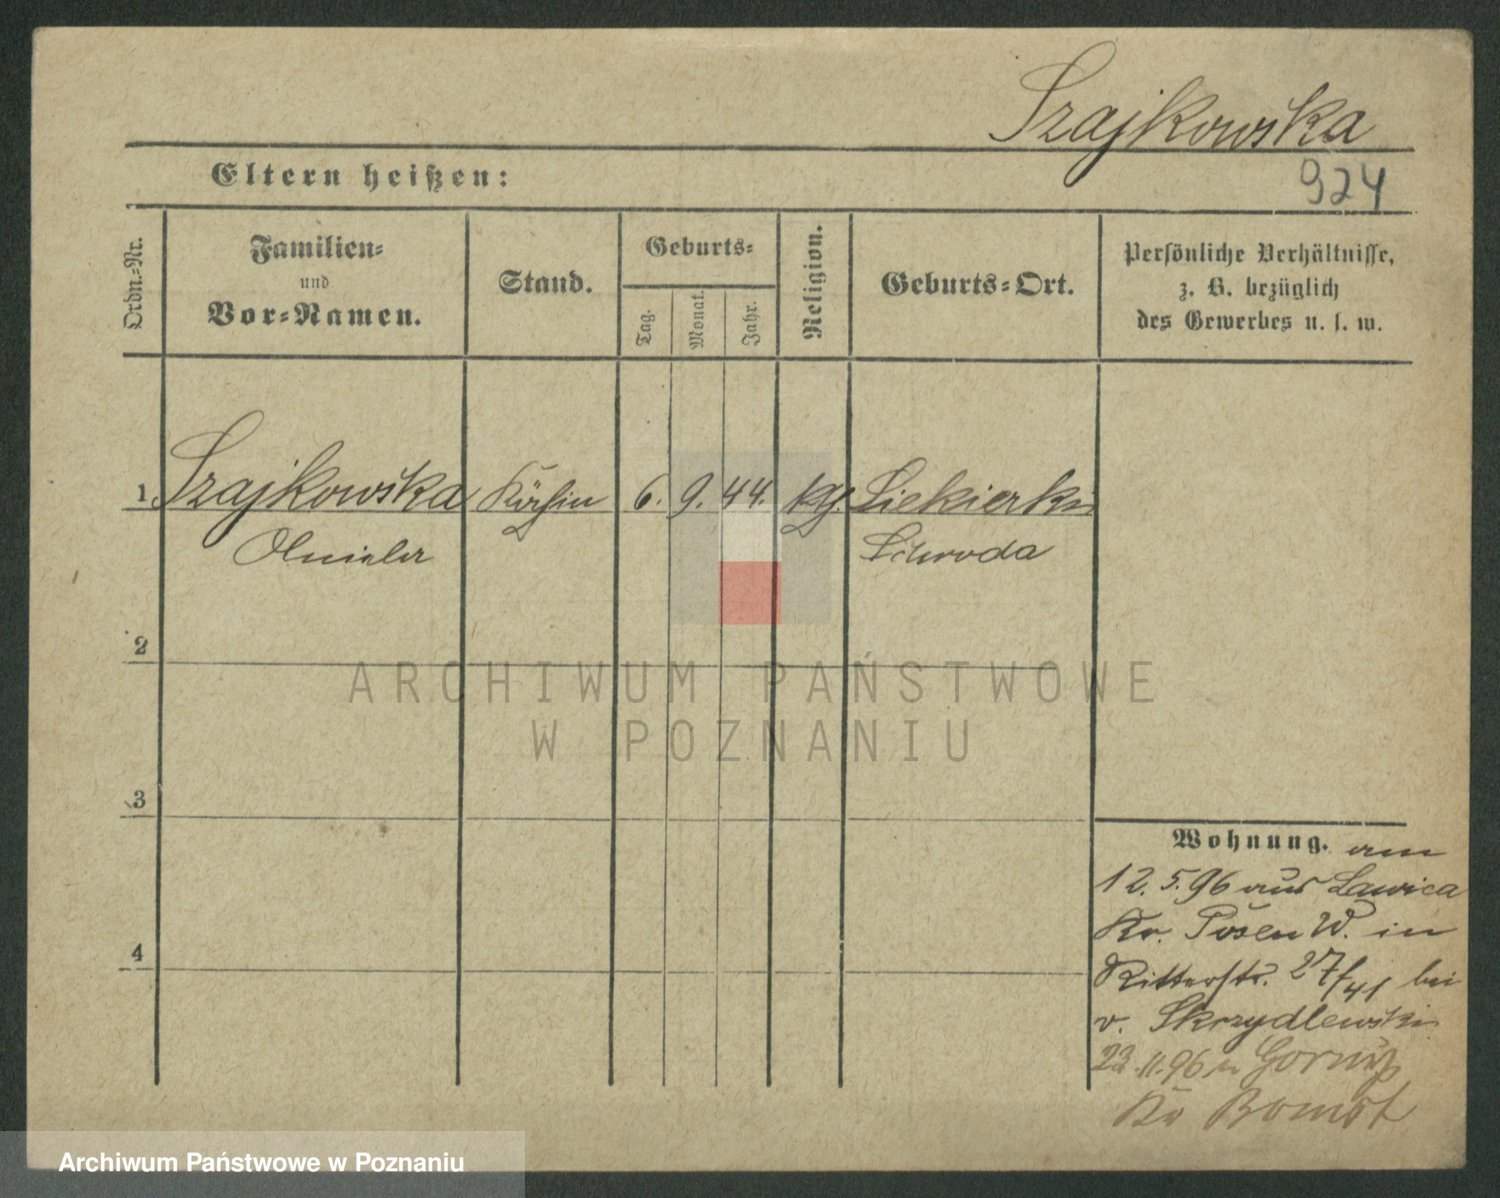 Szajkowska
Eltern heißen:
924
Ordn.-Nr.
Familien-
und
Vor-Namen.
Stand.
Geburts-
Tag.
Monat.
Jahr.
Religion.
Geburts-Ort.
Persönliche Verhältnisse,
z. B. bezüglich
des Gewerbes u. s. w.
1. Szajkowska Köchin 6. 9. 44. kth. Siekierki
Schroda
2
3
4
Wohnung. am
12.5.96 aus Lawica
Kr. Posen W. in
Ritterstr. 27/41 bei
v. Skrzydlewski
23.11.96 n
Kr Bomst
ARCHIWUM PAŃSTWOWE
W POZNANIU
Archiwum Państwowe w Poznaniu